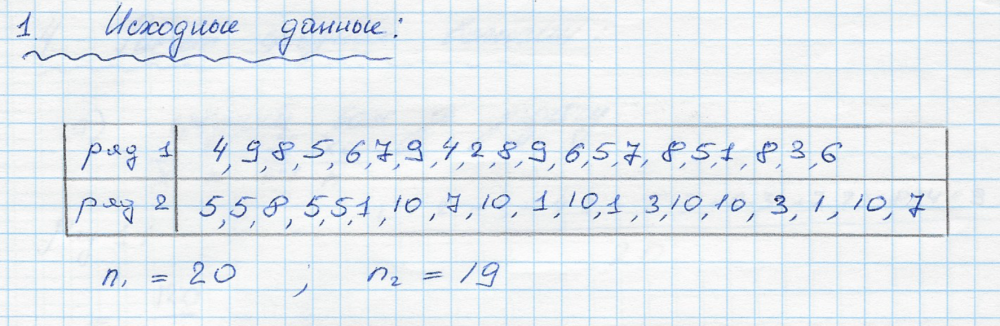 1. Исходные данные:
ряд 1 4, 9, 8, 5, 6, 7, 9, 4, 2, 8, 9, 6, 5, 7, 8, 5, 1, 8, 3, 6
ряд 2 5, 5, 8, 5, 5, 1, 10, 7, 10, 1, 10, 1, 3, 10, 10, 3, 1, 10, 7
n₁ = 20 ; n₂ = 19